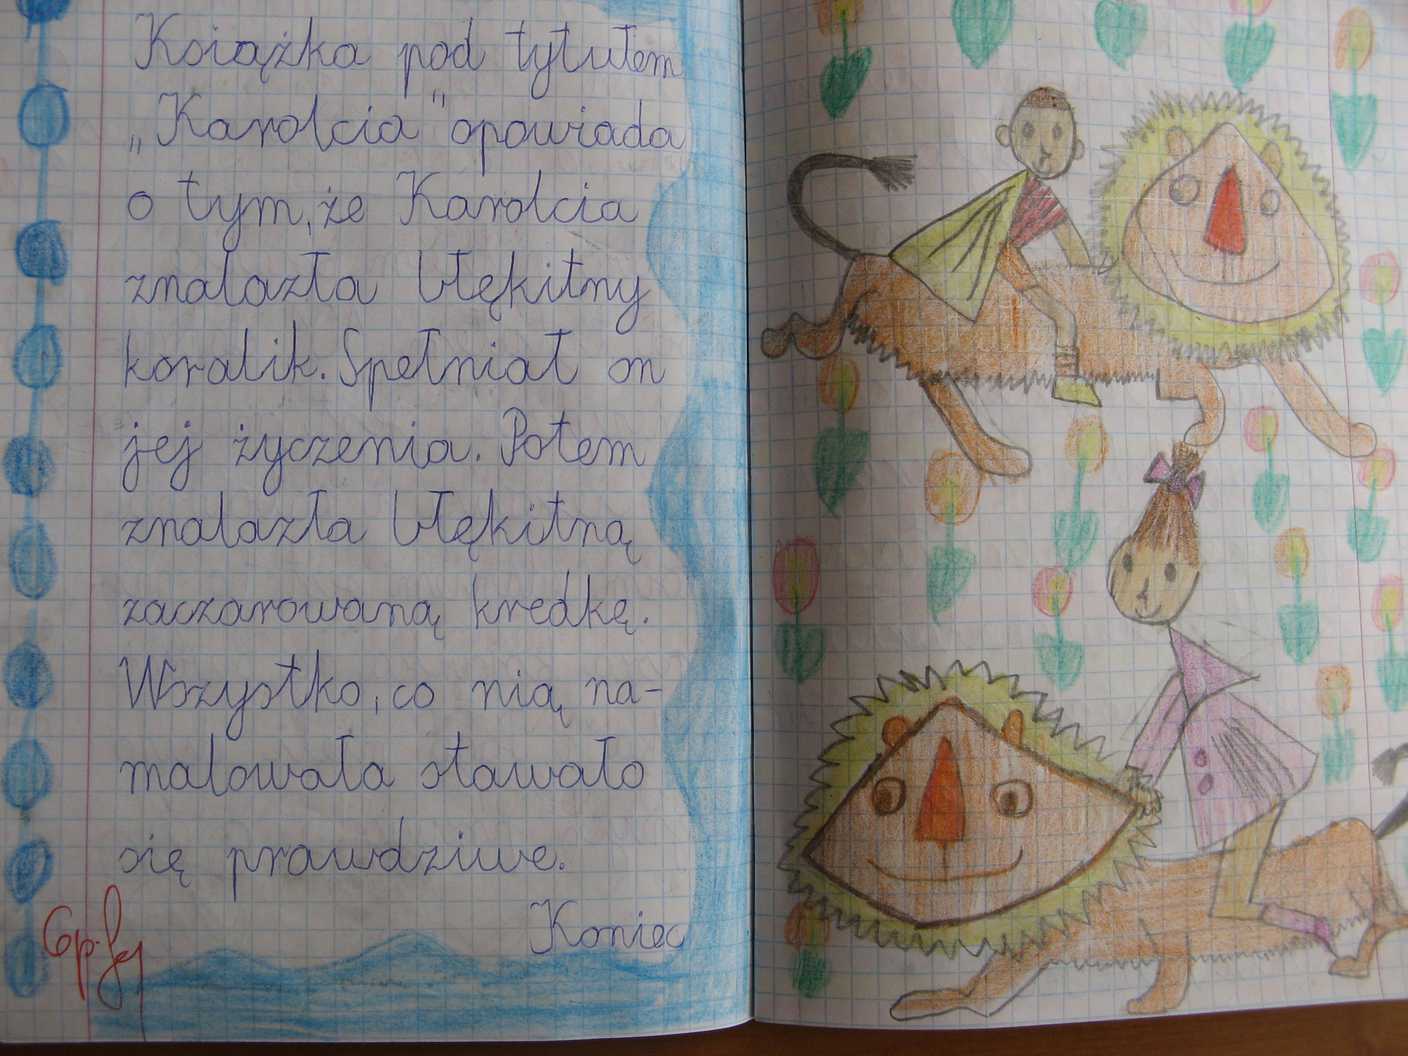 Książka pod tytułem
„Karolcia" opowiada
o tym, że Karolcia
znalazła błękitny
koralik. Spełniał on
jej życzenia. Potem
znalazła błękitną
zaczarowaną kredkę.
Wszystko, co nią na-
malowała stawało
się prawdziwe.
Koniec
6p.